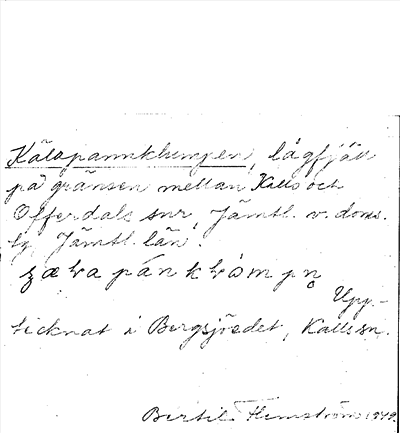 Kälapannklumpen, lågfjäll
på gränsen mellan Kalls och
Offerdals snr, Jämtl. v. doms.
tg, Jämtl. län.
Upp-
tecknat i Bergsjöedet, Kalls sn.
Bertil Hemström 1949.